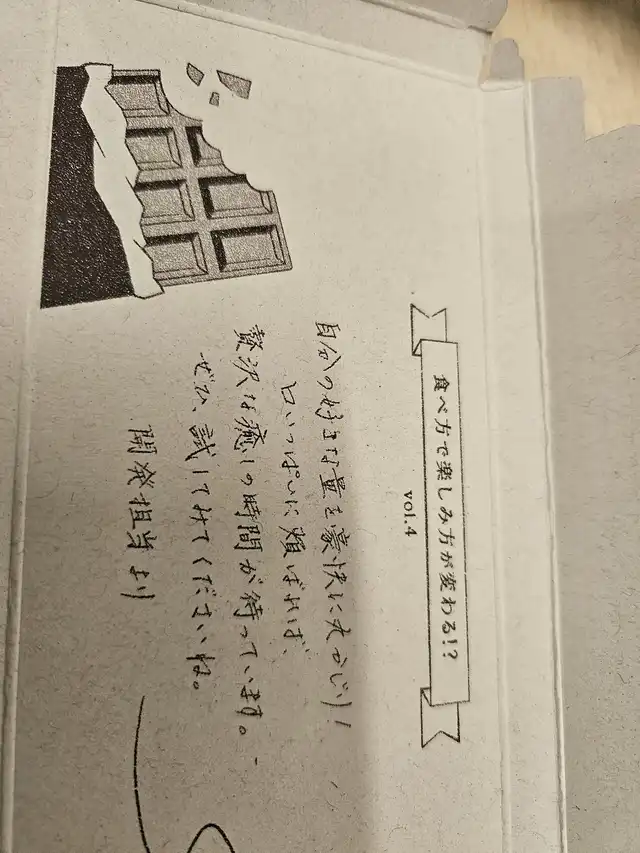 食べ方で楽しみ方が変わる!?
vol.4
自分の好きな量を豪快に丸かじり!
口いっぱいに頬ばれば、
贅沢な癒しの時間が待っています。
ぜひ、試してみてくださいね。
開発担当より